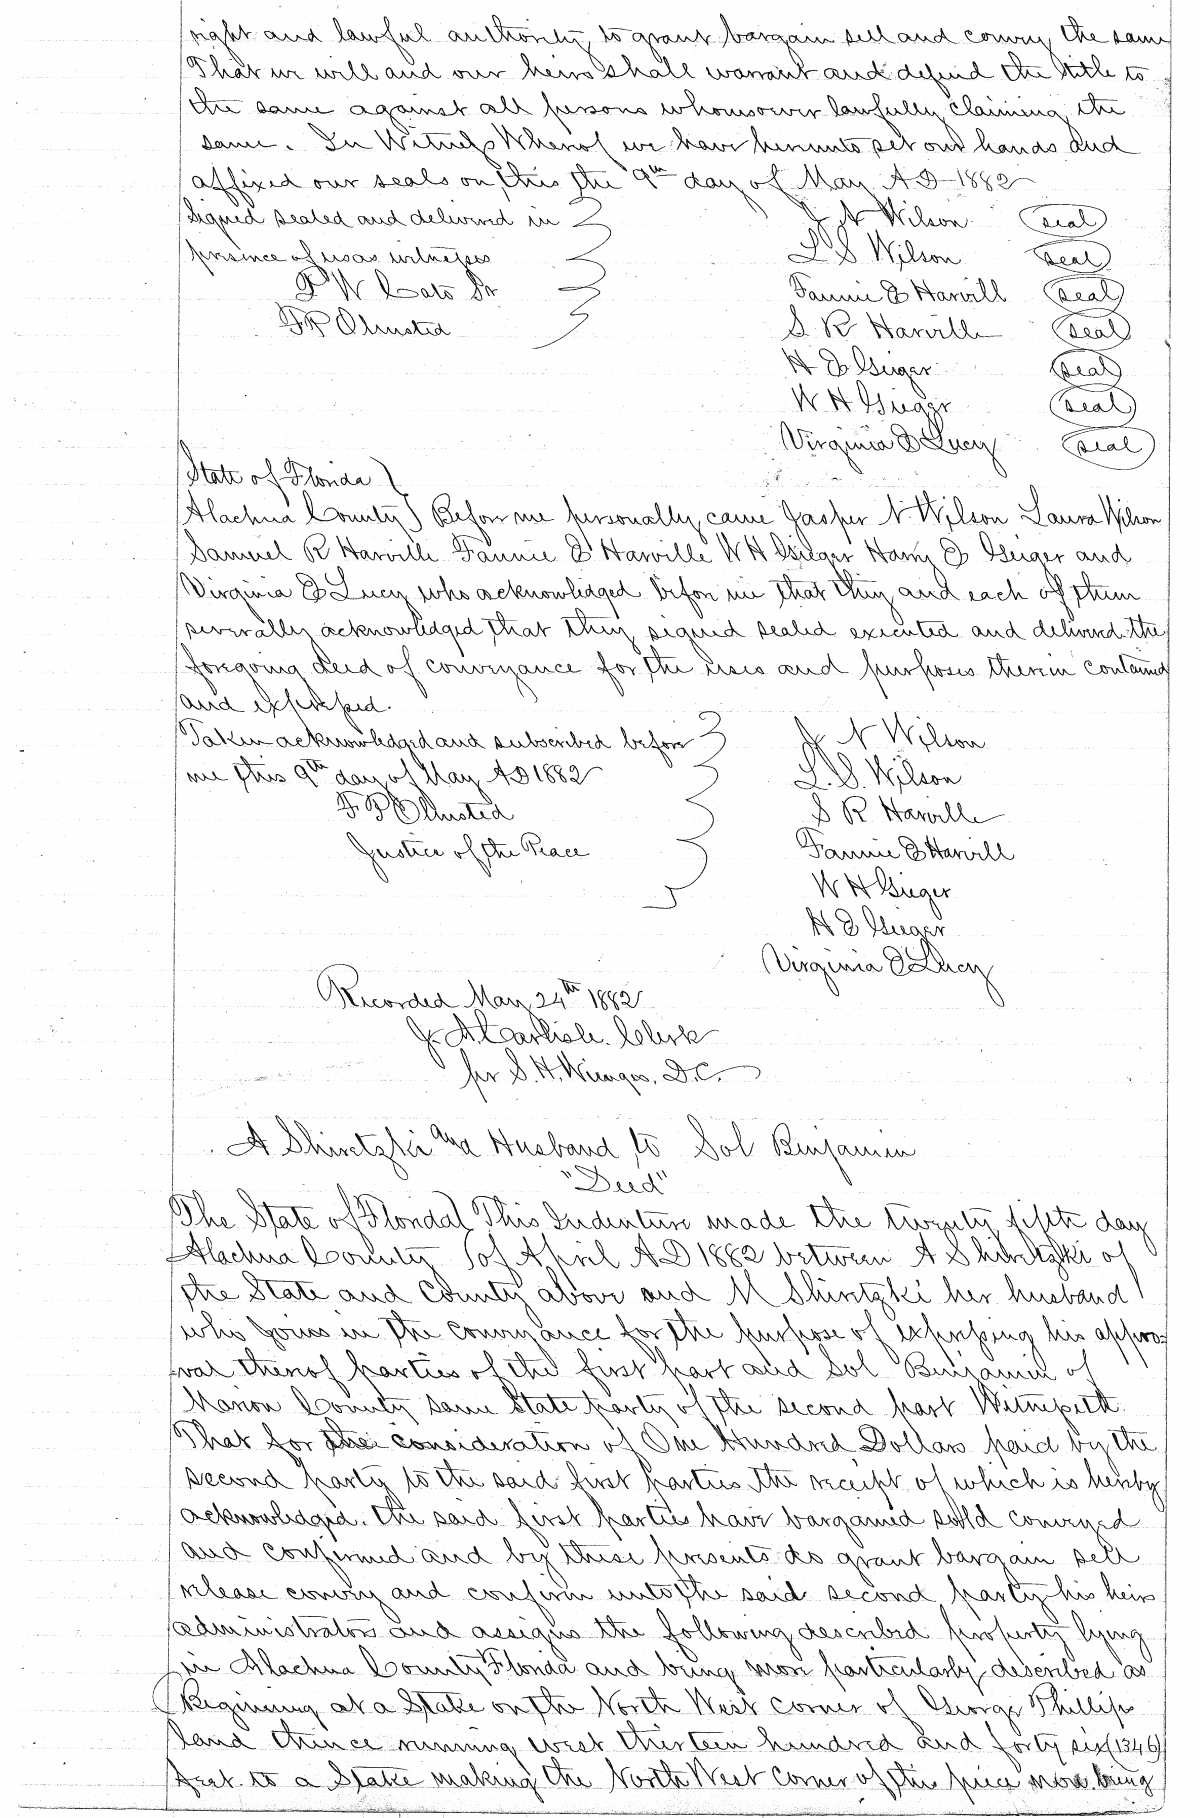 right and lawful authority to grant bargain sell and convey the same
That we will and our heirs shall warrant and defend the title to
the same against all persons whomsoever lawfully claiming the
same. In Witness Whereof we have hereunto set our hands and
affixed our seals on this the 9th day of May A D 1882
Signed sealed and delivered in
presence of us as witnesses
P W Cato Sr
F P Olmsted
J N Wilson seal
L S Wilson seal
Fannie E Harvill seal
S R Harville seal
H E Gieger seal
W H Gieger seal
Virginia E Lucy seal
State of Florida
Alachua County) Before me personally came Jasper N Wilson Laura Wilson
Samuel R Harville Fannie E Harville W H Gieger E Geiger and
Virginia E Lucy who acknowledged before me that they and each of them
severally acknowledged that they signed sealed executed and delivered the
foregoing deed of conveyance for the uses and purposes therein contained
and expressed.
Taken acknowledged and subscribed before
me this 9th day of May A D 1882
F P Olmsted
Justice of the Peace
J N Wilson
L. S. Wilson
S R Harville
Fannie E Harvill
W H Gieger
H E Gieger
Virginia E Lucy
Recorded May 24th 1882
J. A. Carlisle. Clerk
per S. H. Wienges. D.C.
A Shiretzki and Husband to Sol Benjamin
"Deed"
The State of Florida) This Indenture made the twenty fifth day
Alachua County (of April A D 1882 between A Shiretzki of
the State and County above and M Shiretzki her husband
who joins in the conveyance for the purpose of expressing his appro-
val thereof parties of the first part and Sol Benjamin of
Marion County same State party of the second part Witnesseth
That for the consideration of One Hundred Dollars paid by the
second party to the said first parties the receipt of which is hereby
acknowledged. the said first parties have bargained sold conveyed
and confirmed and by these presents do grant bargain sell
release convey and confirm unto the said second party his heirs
administrators and assigns the following described property lying
in Alachua County Florida and being more particularly described as
Begining at a Stake on the North West corner of George Phillips
land thence running west thirteen hundred and forty six (1346)
feet to a Stake making the North West corner of the piece now being